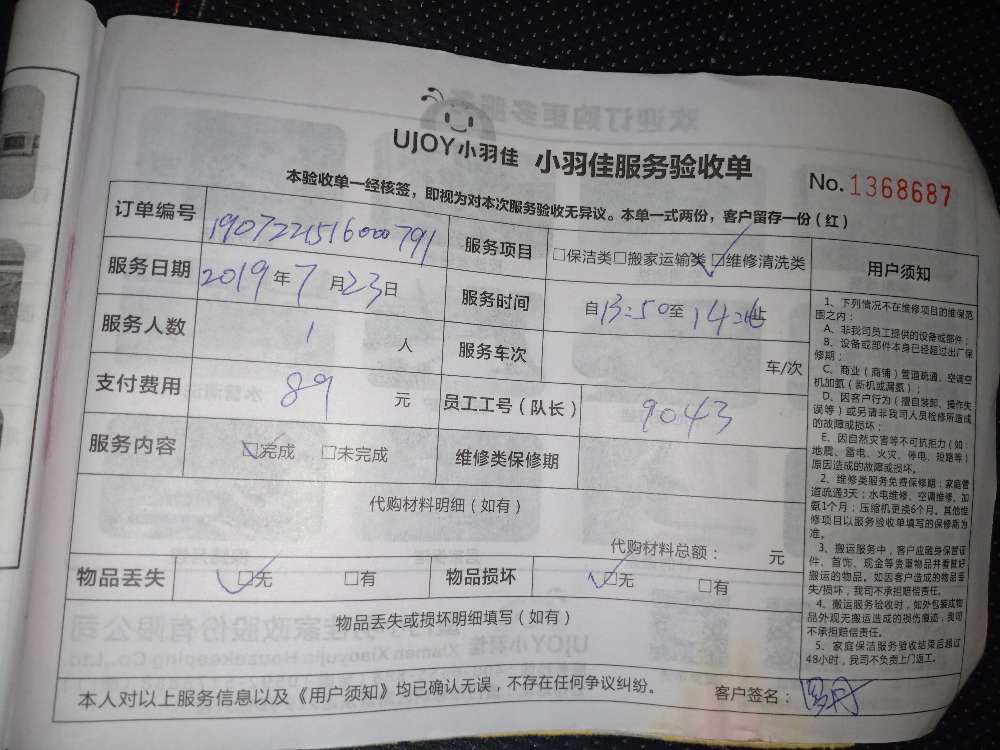 UJOY小羽佳 小羽佳服务验收单
No. 1368687
本验收单一经核签，即视为对本次服务验收无异议。本单一式两份，客户留存一份（红）
订单编号 190722151600791 服务项目 □保洁类□搬家运输类□维修清洗类
服务日期 2019年7月23日 服务时间 自13:50至14:
服务人数 1人 服务车次 车/次
支付费用 89元 员工工号（队长） 9043
服务内容 □完成 □未完成 维修类保修期
代购材料明细（如有）
代购材料总额： 元
物品丢失 □无 □有 物品损坏 □无 □有
物品丢失或损坏明细填写（如有）
本人对以上服务信息以及《用户须知》均已确认无误，不存在任何争议纠纷。 客户签名：
用户须知
1、下列情况不在维修项目的维保范
围之内：
A、非我司员工提供的设备或部件；
B、设备或部件本身已经超过出厂保
修期；
C、商业（商铺）管道疏通、空调空
机加氨（新机或漏氨）；
D、因客户行为（擅自装卸、操作失
误等）或另请非我司人员检修所造成
的故障或损坏；
E、因自然灾害等不可抗拒力（如：
地震、雷电、火灾、停电、短路等）
原因造成的故障或损坏。
2、维修类服务免费保修期：家庭管
道疏通3天；水电维修、空调维修、加
氨1个月；压缩机更换6个月。其他维
修项目以服务验收单填写的保修期为
准。
3、搬运服务中，客户应随身保管证
件、首饰、现金等贵重物品并看管好
搬运的物品。如因客户造成的物品丢
失/损坏，我司不承担赔偿责任。
4、搬运服务验收时，如外包装或物
品外观无搬运造成的损伤痕迹，我司
不承担赔偿责任。
5、家庭保洁服务验收结束后超过
48小时，我司不负责上门返工。